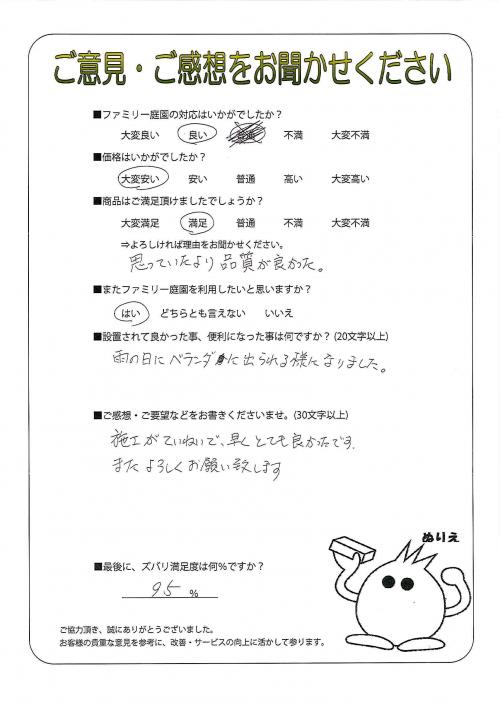 ご意見・ご感想をお聞かせください
■ファミリー庭園の対応はいかがでしたか？
大変良い 良い 普通 不満 大変不満
■価格はいかがでしたか？
大変安い 安い 普通 高い 大変高い
■商品はご満足頂けましたでしょうか？
大変満足 満足 普通 不満 大変不満
⇒よろしければ理由をお聞かせください。
思っていたより品質が良かった。
■またファミリー庭園を利用したいと思いますか？
はい どちらとも言えない いいえ
■設置されて良かった事、便利になった事は何ですか？(20文字以上)
雨の日にベランダに出られる様になりました。
■ご感想・ご要望などをお書きくださいませ。(30文字以上)
施工がていねいで、早くとても良かったです.
またよろしくお願い致します
ぬりえ
■最後に、ズバリ満足度は何％ですか？
95 %
ご協力頂き、誠にありがとうございました。
お客様の貴重な意見を参考に、改善・サービスの向上に活かして参ります。